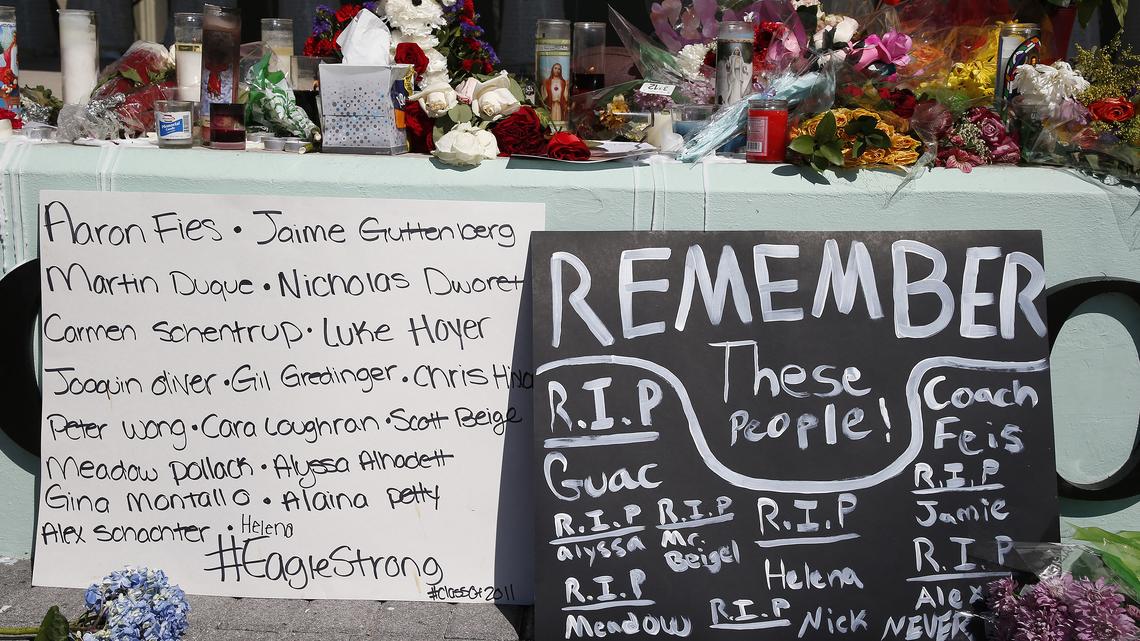 Aaron Fies • Jaime Guttenberg
Martin Duque • Nicholas Dworet
Carmen Schentrup • Luke Hoyer
Joaquin oliver • Gil Gredinger • Chris
Peter wong • Cara Loughran • Scott Beige
Meadow pollack • Alyssa Alhadett
Gina Montallo • Alaina petty
Alex Schachter • Helena
#EagleStrong
#Classof2011
REMEMBER
These
People!
R.I.P
Guac
R.I.P
alyssa
R.I.P
Mr.
Beigel
R.I.P
Helena
R.I.P
Meadow
R.I.P
Nick
Coach
Feis
R.I.P
Jamie
R.I.P
Alex
NEVER